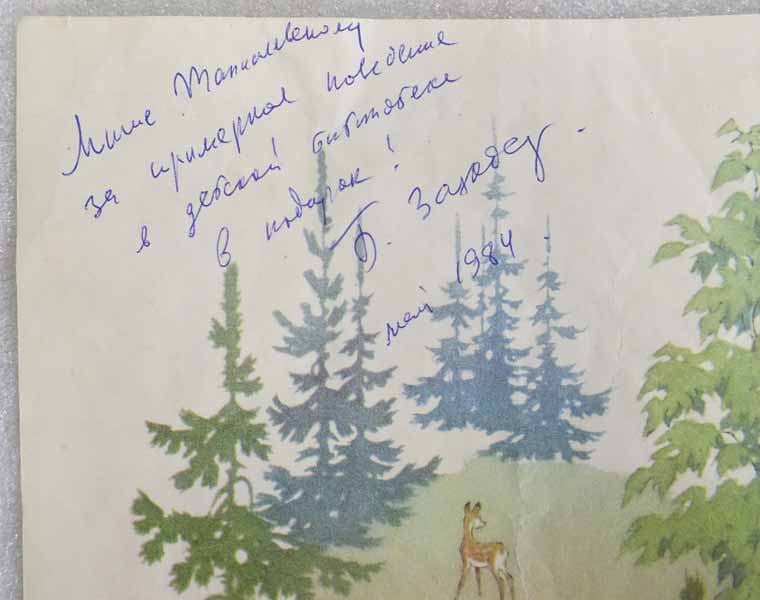 Мише
за примерное поведение
в детской библиотеке
в подарок!
Б. Заходер.
май 1984.